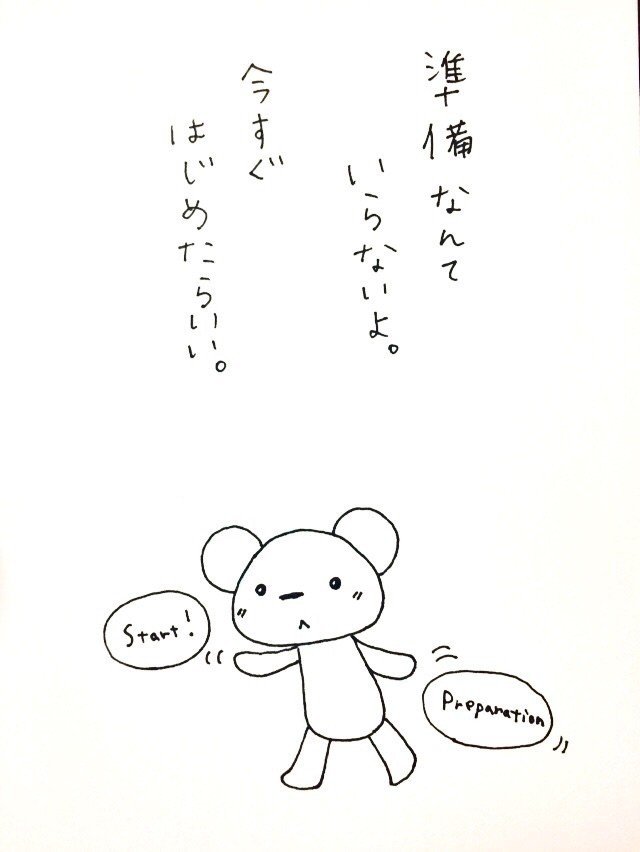 準備なんて
いらないよ。
今すぐ
はじめたらいい。
Start!
Preparation